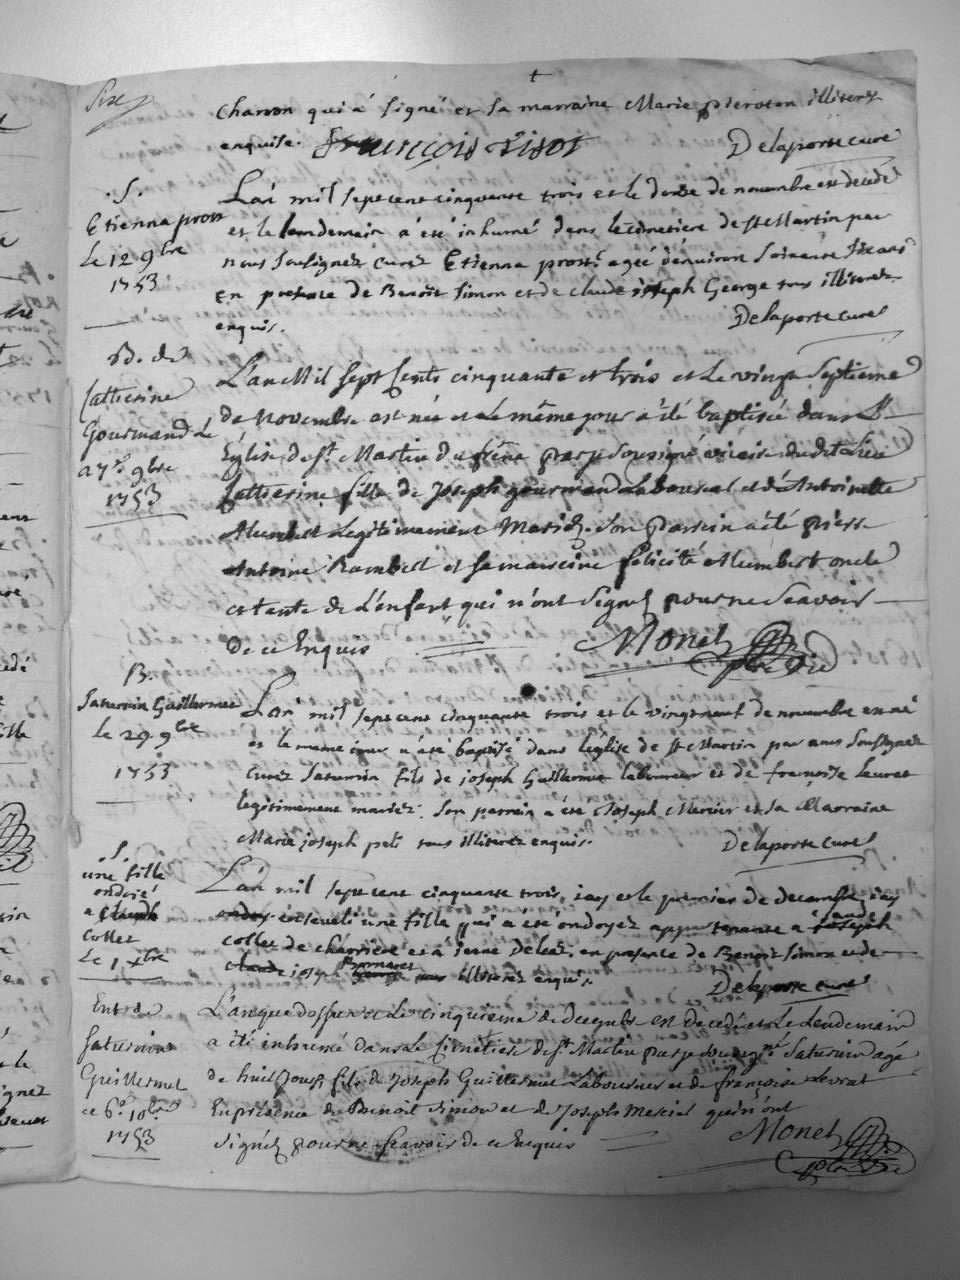 Sixe
charon qui à signé et sa marraine Marie pieroton illiterez
enquise. François Visot Delaporte curé
.S.
Etienna prost
Le 12 9bre
1753
L'an mil sept cent cinquante trois et le douze de novembre est decedé
et le lendemain à été inhumé dans le cimetiere de St Martin par
nous soussignez curez Etienna prost agée d'environ soixante
En presence de Benoit Simon et de claude joseph George tous illiterez
enquis. Delaporte curé
B. de
Catherine
Gourmand Le
27e 9bre
1753
L'an Mil Sept Cents cinquante et trois et Le vingt Septieme
de Novembre est née et Le même jour a été baptisée dans L'
Eglise de St Martin du frêne par je Soussigné vicaire dudit Lieu
Catherine fille de Joseph gourmand Laboureur et d'Antoinette
Humbert Legitimement Mariez. Son parrain a été pierre
Antoine Rambert et sa mareine felicité Humbert oncle
et tante de L'enfant qui n'ont Signez pour ne Scavoir
De ce Enquis Monet ptre Vic
B.
Saturnin Guillermet
le 29 9bre
1753
L'an mil sept cent cinquante trois et le vingt neuf de novembre est né
et le meme jour a été baptisé dans l'église de St Martin par nous soussignez
Curez Saturnin fils de joseph Guillermet laboureur et de francoise Levrat
legitimement mariez. Son parrain a été Joseph Mercier et sa Marraine
Marie joseph tous illiterez enquis. Delaporte curé
S.
une fille
ondoié
a Claude
Collet
Le 1 xbre
L'an mil sept cent cinquante trois, et le premier de decembre j'ay
enseveli une fille qui à été ondoyez appartenante a Claude
collet de charriere et à en presence de Benoit Simon et de
joseph illiterez enquis. Delaporte curé
Ent. de
Saturnin
Guillermet
ce 6e 10bre
1753
L'an que dessus et Le cinquieme de decembre est Decedé et Le Lendemain
a été inhumé dans Le Cimetiere de St Martin par je soussigné Saturnin agé
de huit Jours fils de Joseph Guillermet Laboureur et de françoise Levrat
En présence de Benoit Simon et de Joseph Mercier qui n'ont
Signéz pour ne Scavoir de ce Enquis Monet
ptre Vic